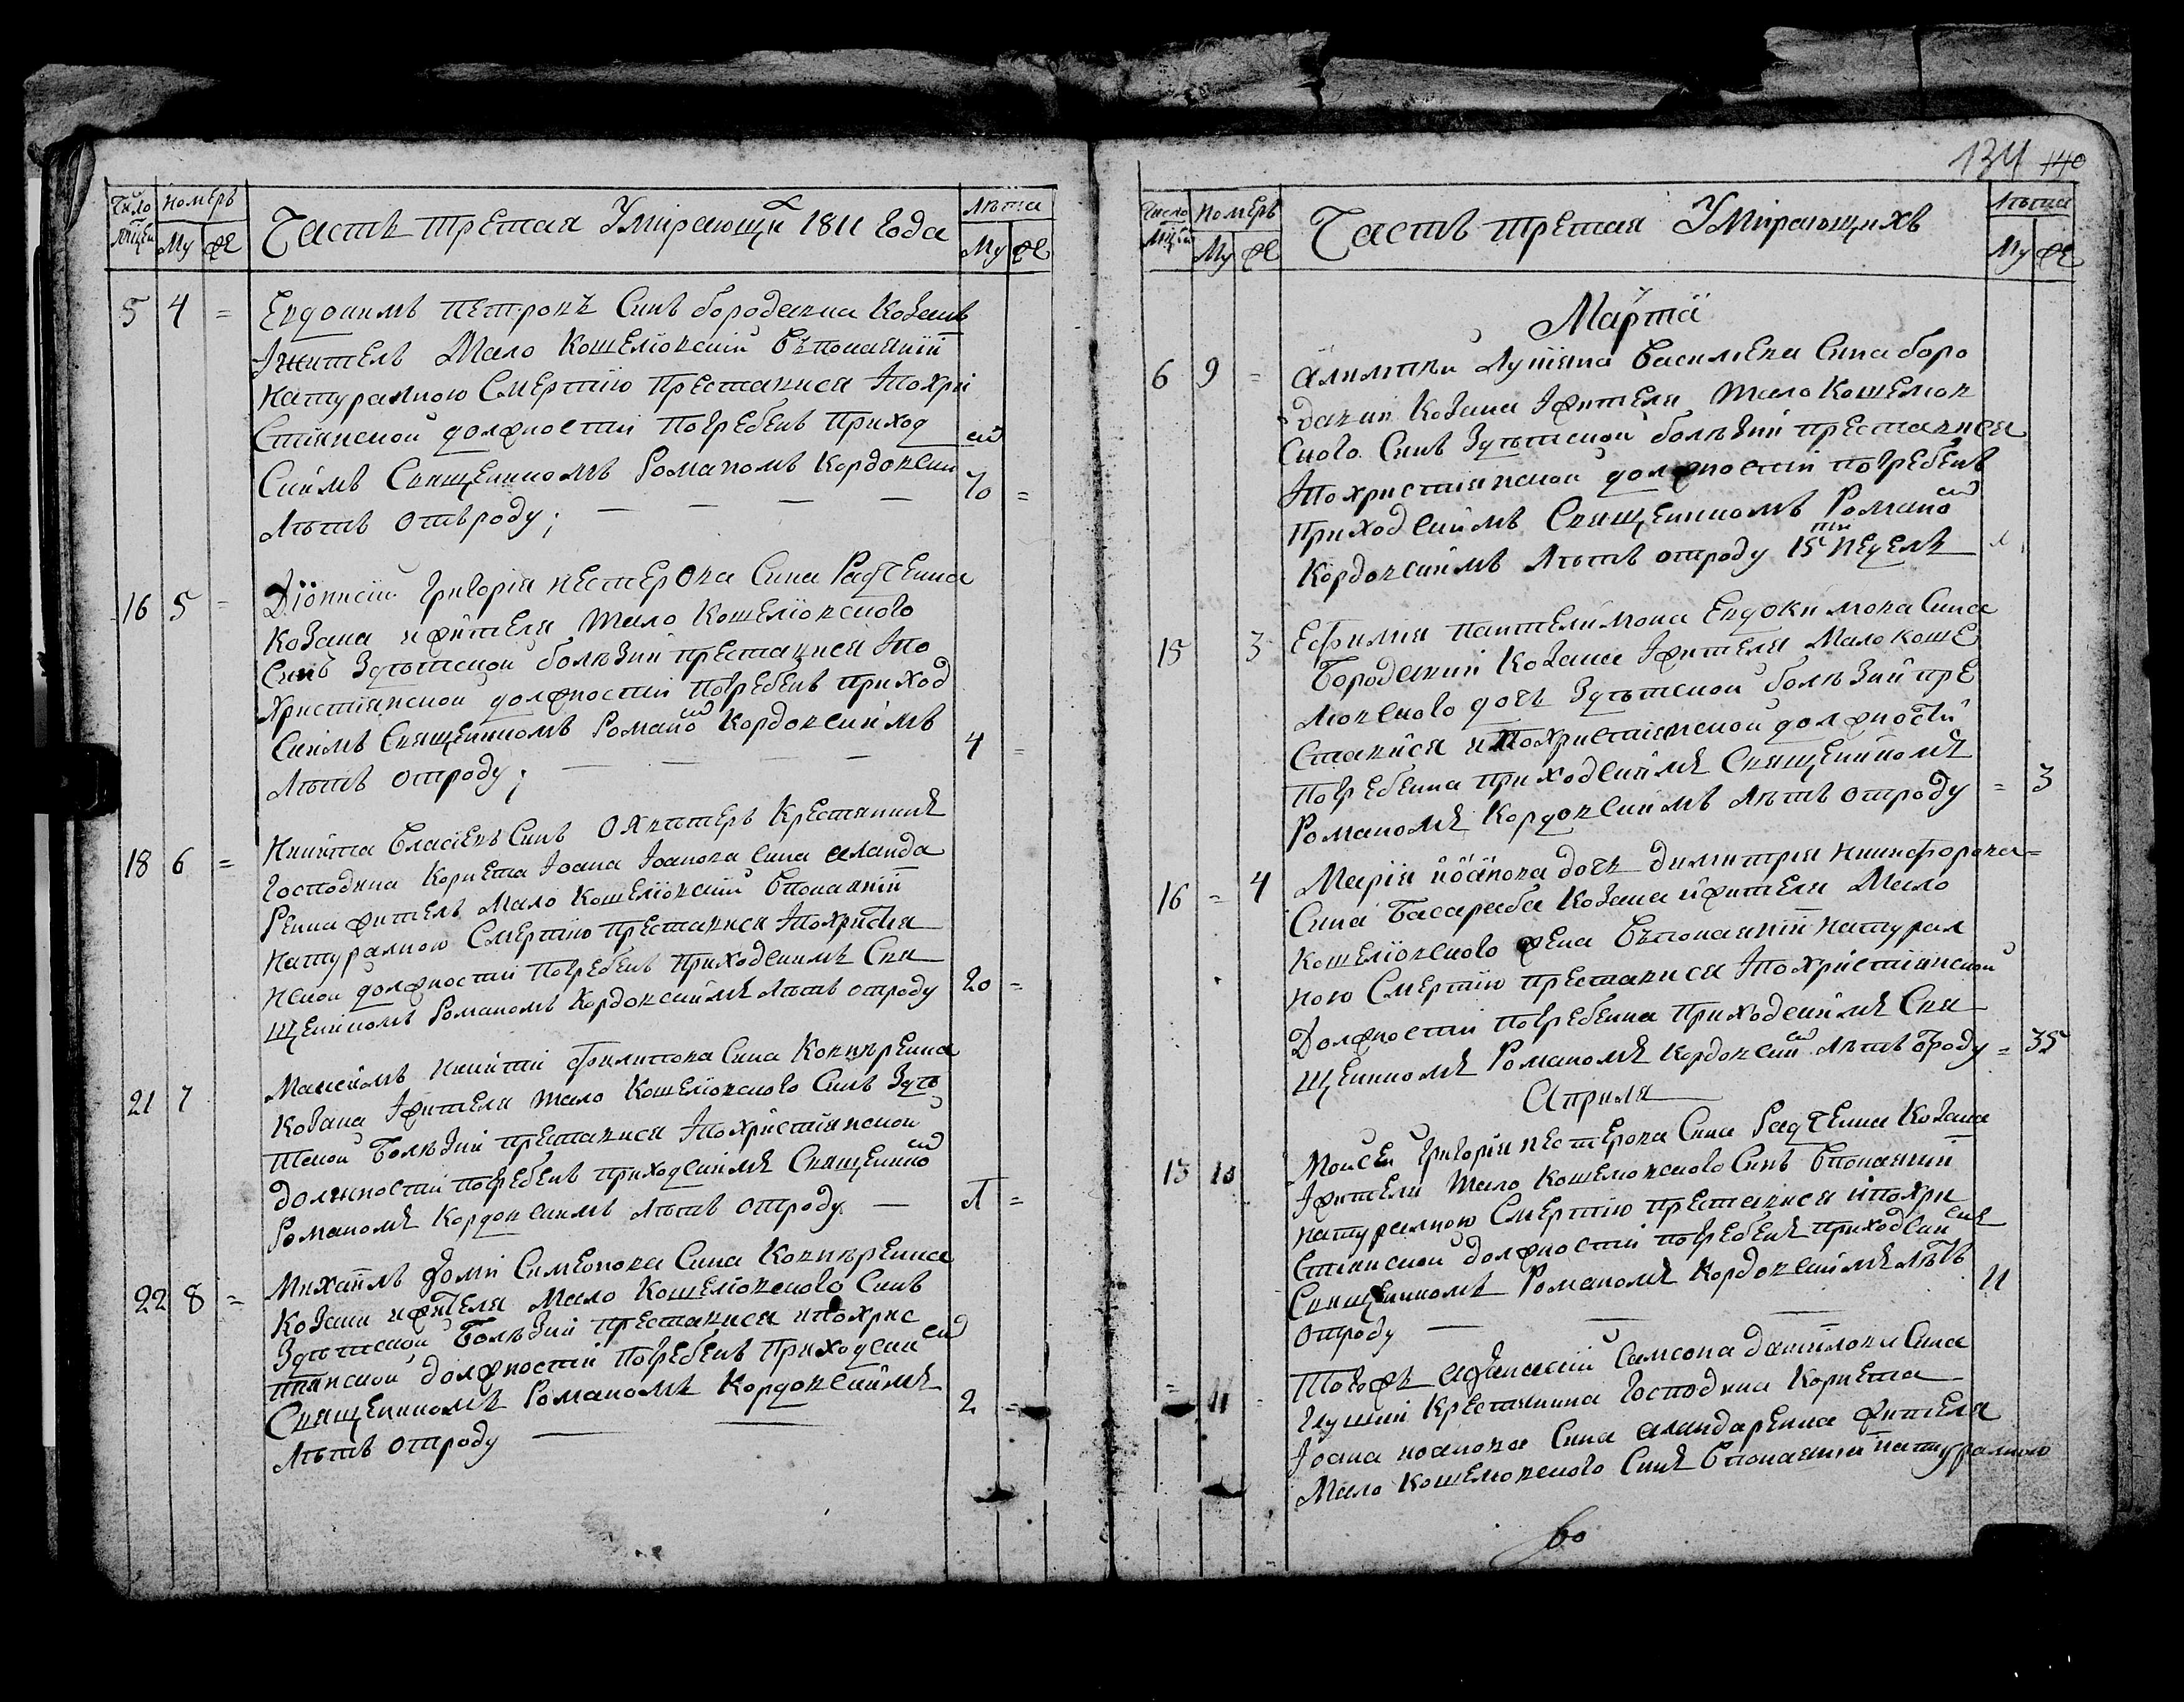 Число мцей
Номеръ
Му
Же
Часть третая Умирающихъ 1811 Года
Лѣта
Му
Же
5 4 = Евдокимъ Петровъ Синъ бородавка Козакъ
Ижитель Мало Кошелiовскiй въпокаянiй
натуралною Смертiю преставися Iпохри
Стiянской должностiй погребенъ приход
Скимъ Священникомъ Романомъ Кордовским
Лѣтъ отъроду; — — — — 70 =
16 5 = Дiонисiй Григорiя нестерова Сина Радченка
Козака ижителя мало Кошелiовского
Синъ Здѣтской болѣзнiй преставися Iпо
Христiянской должностiй погребенъ приход
Скимъ Священникомъ Романом Кордовскимъ
Лѣтъ отроду; — — — — 4 =
18 6 = Никита Власiевъ Синъ Охвѣтеръ Крестянинъ
Господина Корнета Iоана Iоанова Сина аланда
Ренка житель Мало Кошелiовскiй впокаянiй
Натуралною Смертiю преставися Iпохристiя
нской должностiй погребенъ приходскимъ Свя
щеникомъ Романомъ Кордовскимъ Лѣтъ отроду 20 =
21 7 Максимъ Никити Филипова Сина Ковнѣренка
Козака Iжителя мало Кошелiовского Синъ Здѣ
тской Болѣзнiй преставися Iпохристiянской
должностiй погребенъ приходскимъ Священником
Романомъ Кордовскимъ Лѣтъ отроду — =
22 8 = Михаилъ Фоми Симеонова Сина Ковнѣренка
Козака ижителя Мало Кошелiовского Синъ
Здѣтской Болѣзнiй преставися ипохрис
тiянской должностiй погребенъ Приходским
Священникомъ Романомъ Кордовскимъ
Лѣтъ отроду — — 2 =
134 140
Число мцей
Номеръ
Му
Же
Часть третая Умирающихъ
Лѣта
Му
Же
Марта
6 9 = Лукiяна Василiева Сина боро
давки Козака Iжителя мало Кошелiов
Ского Синъ Здѣтской болѣзнiй преставися
Iпохристиянской должностiй погребенъ
приходскимъ Священникомъ Романом
Кордовскимъ Лѣтъ отроду 15ти Неделъ
15 3 Ефимия пантелимона Евдокимова Сина
Бородавки Козака Iжителя Мало коше
лiовского дочь Здѣтской болѣзнiй пре
ставися ипохристiянской должностiй
погребенна приходскимъ Священикомъ
Романомъ Кордовскимъ Лѣтъ отроду = 3
16 = 4 Марiя iоанова дочь димитрiя никифорова
Сина Басараба Козака ижителя Мало
Кошелiовского жена въпокаянiй натурал
ною Смертiю преставися Iпохристiянской
Должностiй погребенна приходскимъ Свя
щенникомъ Романомъ Кордовским Лѣтъ отроду = 35
Априля
13 10 Моисей Григорiя нестерова Сина Радченка Козака
Iжителя мало Кошелiовского Синъ впокаянiй
натуралною Смертiю преставися iпохри
стiянской должностiй погребенъ приходским
Священникомъ Романомъ Кордовскимъ лѣтъ
отроду — — — 11
= 11 = Тогожъ Афанасiй Самсона данiлова Сина
Глушки Крестянина Господина Корнета
Iоана иоанова Сина аландаренка жителя
Мало Кошелiовского Синъ впокаянiй натуралною